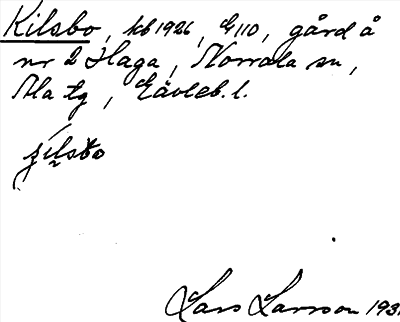 Kilsbo, kb 1926, G110, gård å
nr 2 Haga, Norrala sn,
Ala tg, Gävleb. l.
Lars Larsson 193